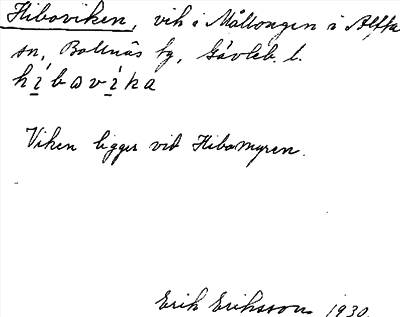 Hiboviken, vik i Mållongen i Alfta
sn, Bollnäs tg, Gävleb. l.
hi̲bɷvi̲ka
Viken ligger vid Hibomyren.
Erik Eriksson 1930.